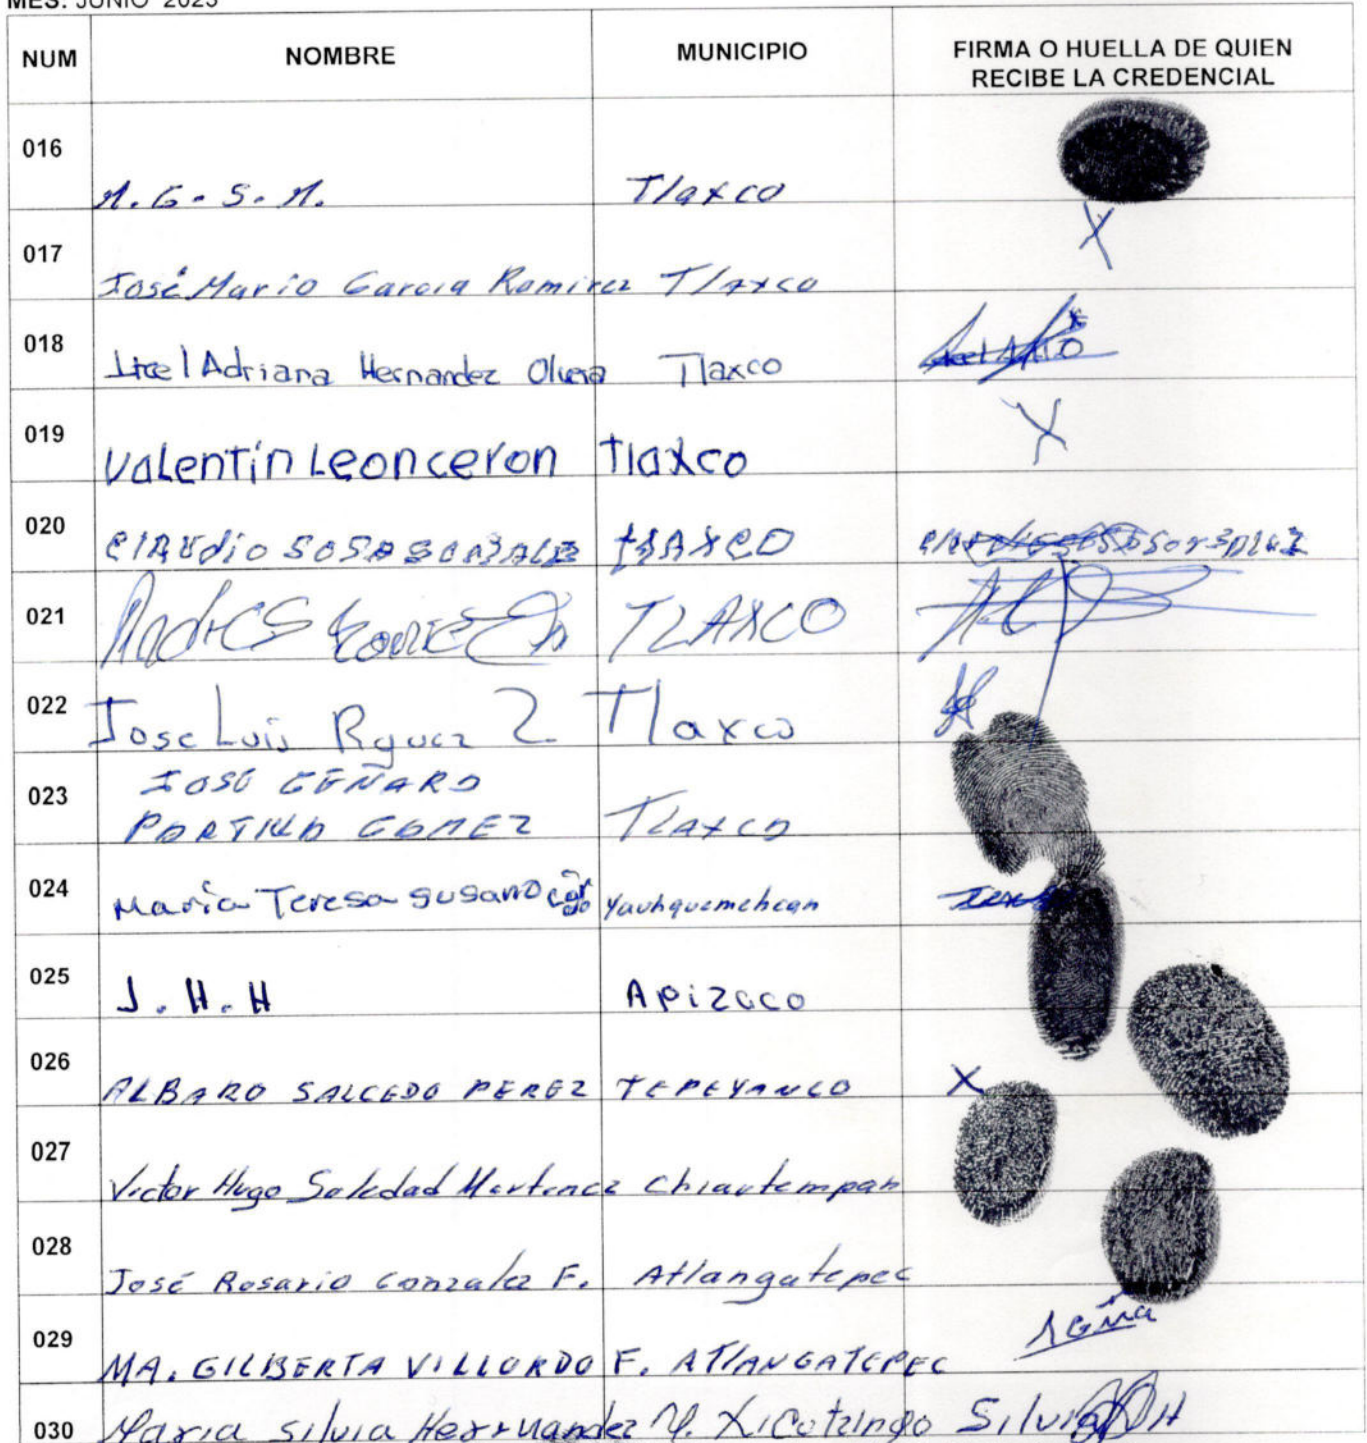 MES: JUNIO 2023
NUM NOMBRE MUNICIPIO FIRMA O HUELLA DE QUIEN RECIBE LA CREDENCIAL
016 M.G.S.M. Tlaxco
017 José Mario Garcia Ramirez Tlaxco X
018 Itcel Adriana Hernandez Olvera Tlaxco
019 Valentín Leonceron Tlaxco X
020 ClAUdio SOSA GONZALEZ tLAXCO
021 Andres TLAXCO
022 Jose Luis Tlaxco
023 JOSÉ GENARO PORTILLO GOMEZ Tlaxco
024 María Teresa susano Yauhquemehcan
025 J.H.H Apizaco
026 ALBARO SALCEDO PEREZ TEPEYANCO X
027 Victor Hugo Soledad Martinez Chiautempan
028 José Rosario Gonzalez F. Atlangatepec
029 MA. GILBERTA VILLORDO F. ATLANGATEPEC
030 Maria Silvia Hernandez M. Xicotzingo Silvia